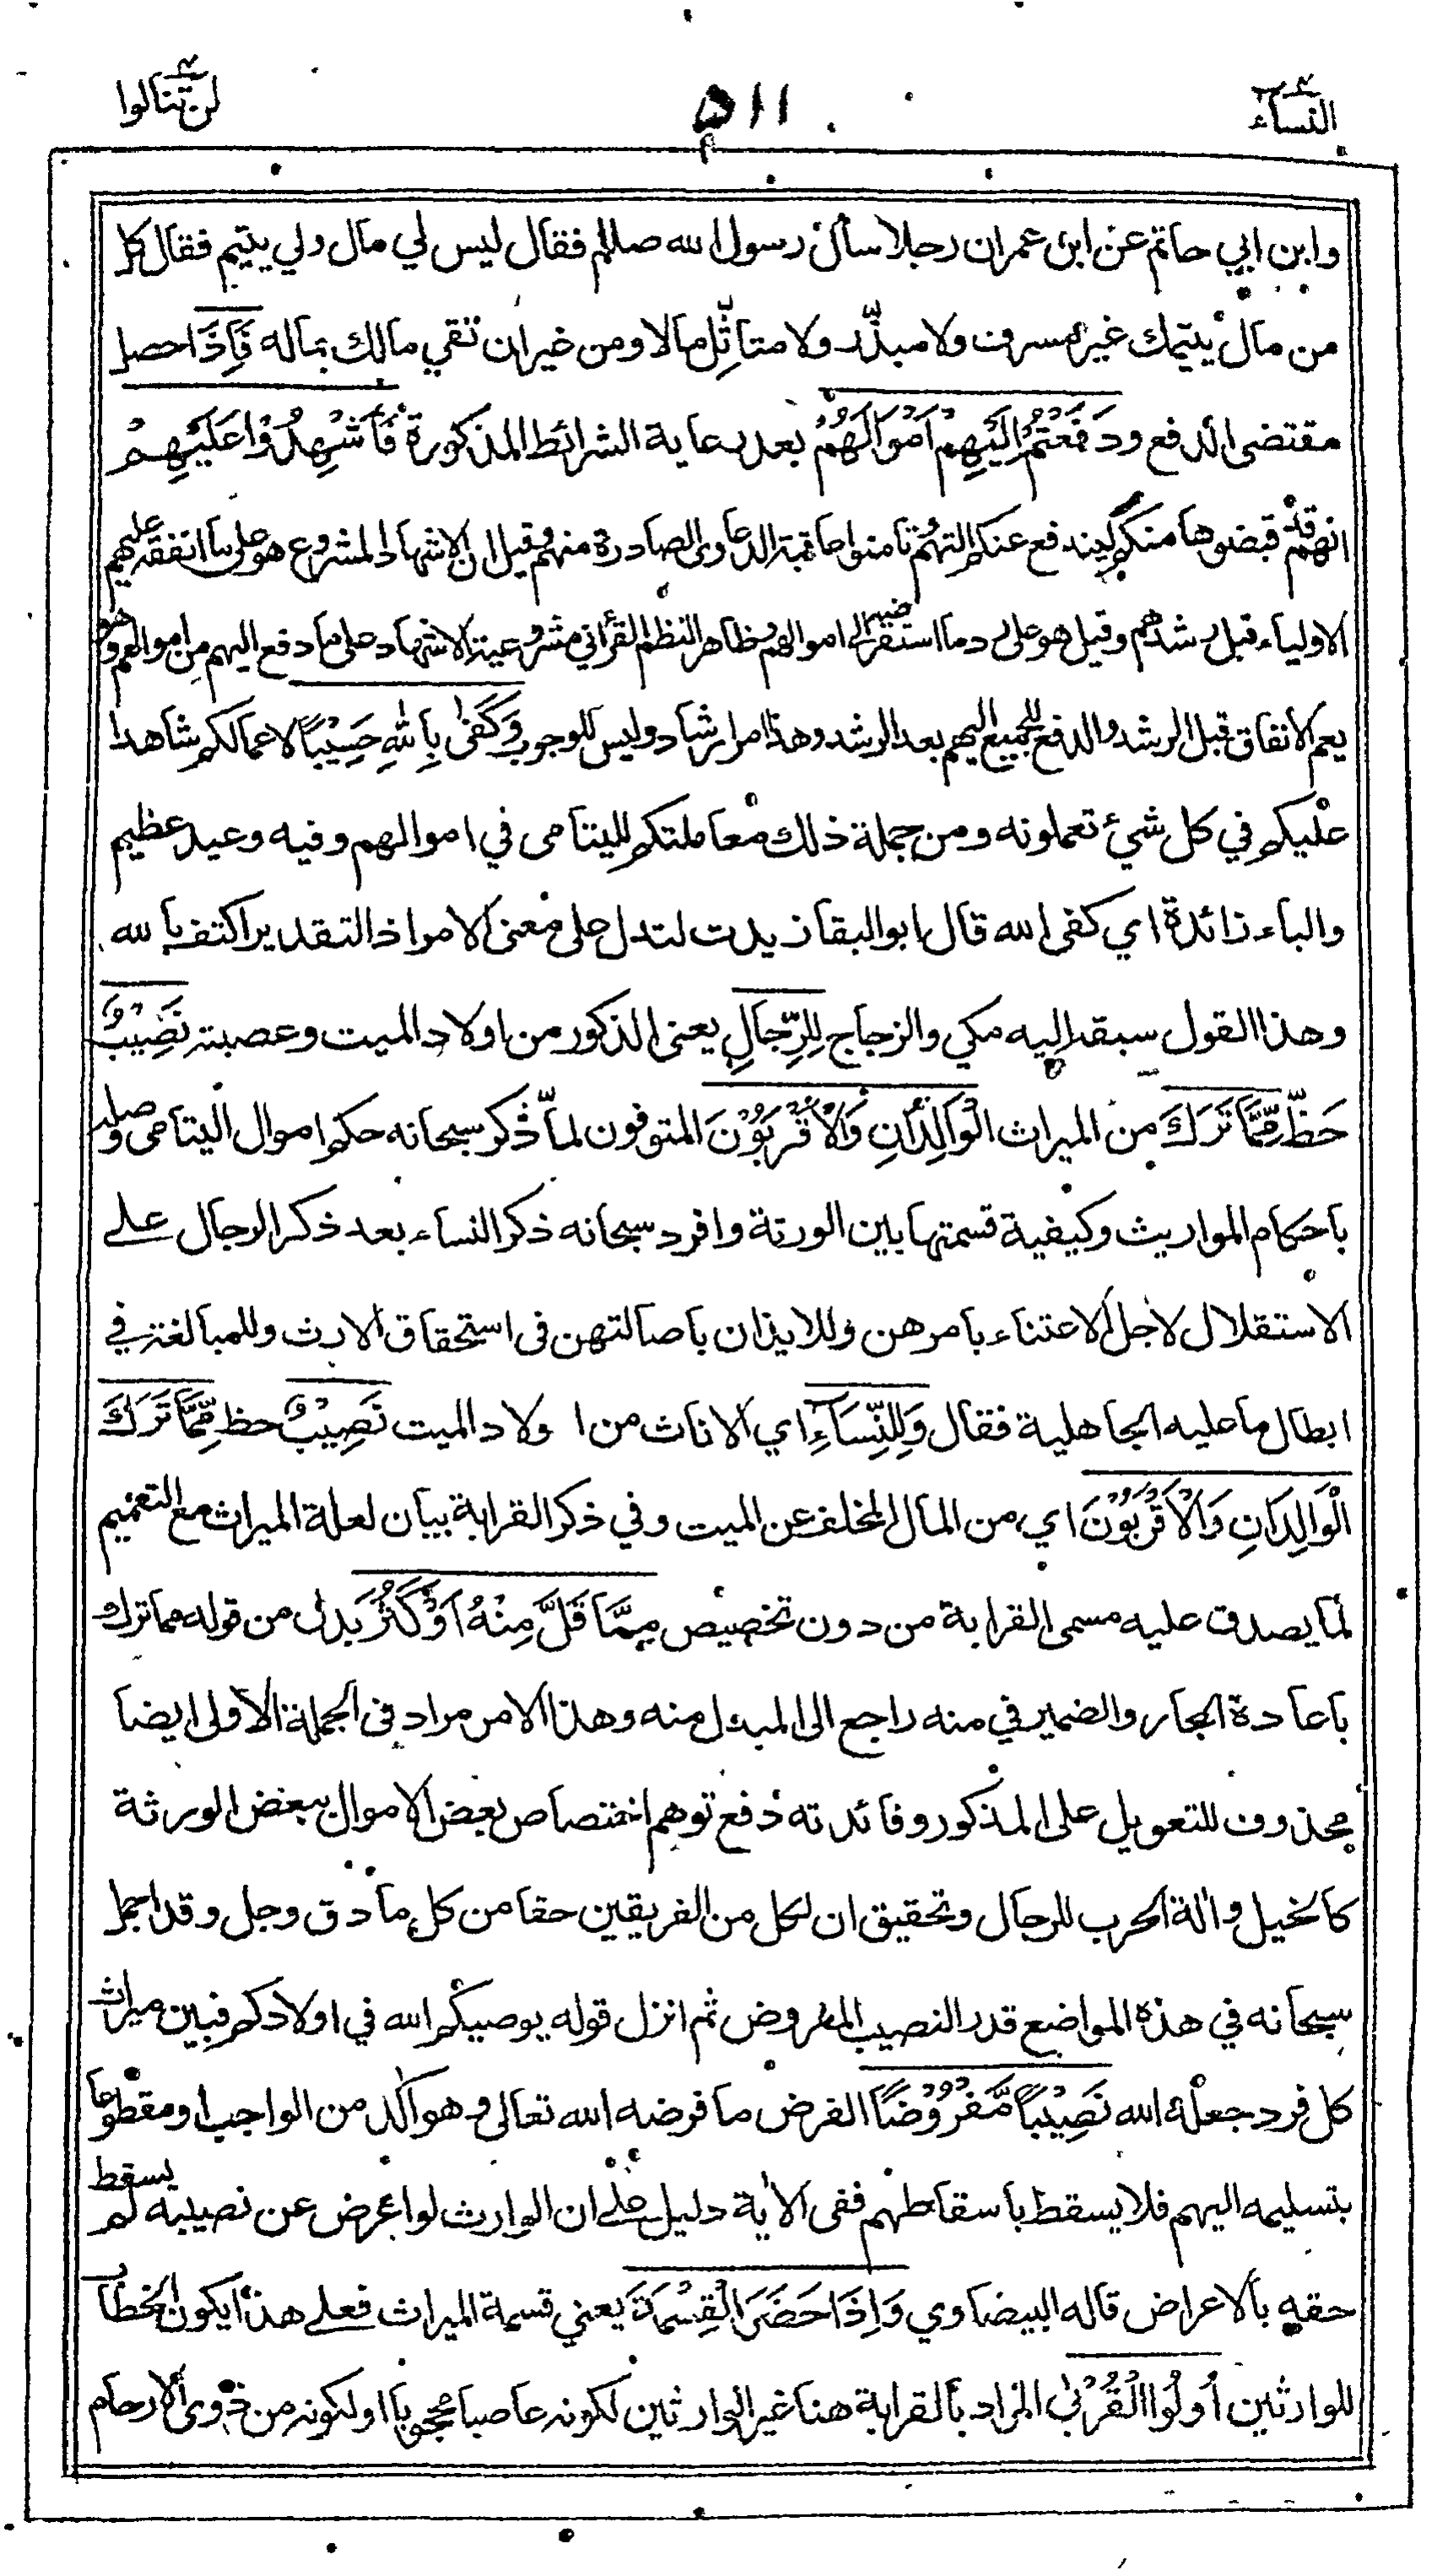 النساء ٤
٥١١
لن تنالوا ٤
وابن ابي حاتم عن ابن عمر ان رجلا سأل رسول الله صللم فقال ليس لي مال ولي يتيم فقال كل
من مال يتيمك غير مسرف ولا مبذّر ولا متأثّل مالا ومن غير ان تقي مالك بماله فَإِذَا حصل
مقتضى الدفع ودَفَعْتُمْ إِلَيْهِمْ أَمْوَالَهُمْ بعد رعاية الشرائط المذكورة فَأَشْهِدُوْا عَلَيْهِمْ
انهم قد قبضوها منكم ليندفع عنكم التهم وتأمنوا عاقبة الدعاوى الصادرة منهم وقيل ان الاشهاد المشروع هو على ما انفقه عليهم
الاولياء قبل رشدهم وقيل هو على رد ما استقرضه الى اموالهم وظاهر النظم القرأني مشروعية الاشهاد على ما دفع اليهم من اموالهم وهو
يعم الانفاق قبل الرشد والدفع للجميع اليهم بعد الرشد وهذا امر ارشاد وليس للوجوب وَكَفٰى بِاللّٰهِ حَسِيْبًا لاعمالكم شاهدا
عليكم في كل شيء تعملونه ومن جملة ذلك معاملتكم لليتامى في اموالهم وفيه وعيد عظيم
والباء زائدة اي كفى الله قال ابو البقا زيدت لتدل على معنى الامر اذ التقدير اكتف بالله
وهذا القول سبقه اليه مكي والزجاج لِلرِّجَالِ يعنى الذكور من اولاد الميت وعصبته نَصِيْبٌ
حَظّ مِّمَّا تَرَكَ من الميراث الْوَالِدَانِ وَالْأَقْرَبُوْنَ المتوفون لمّا ذكر سبحانه حكم اموال اليتامى وصله
باحكام المواريث وكيفية قسمتها بين الورثة وافرد سبحانه ذكر النساء بعد ذكر الرجال على
الاستقلال لاجل الاعتناء بامرهن وللايذان باصالتهن في استحقاق الارث وللمبالغة في
ابطال ما عليه الجاهلية فقال وَلِلنِّسَآءِ اي الاناث من اولاد الميت نَصِيْبٌ حظ مِّمَّا تَرَكَ
الْوَالِدَانِ وَالْأَقْرَبُوْنَ اي من المال المخلف عن الميت وفي ذكر القرابة بيان لعلة الميراث مع التعميم
لما يصدق عليه مسمى القرابة من دون تخصيص مِمَّا قَلَّ مِنْهُ أَوْ كَثُرَ بدل من قوله مما ترك
باعادة الجار والضمير في منه راجع الى المبدل منه وهذا الامر مراد في الجملة الاولى ايضا
محذوف للتعويل على المذكور وفائدته دفع توهم اختصاص بعض الاموال ببعض الورثة
كالخيل والة الحرب للرجال وتحقيق ان لكل من الفريقين حقا من كل ما دق وجل وقد اجمل
سبحانه في هذه المواضع قدر النصيب المفروض ثم انزل قوله يوصيكم الله في اولادكم فبين ميراث
كل فرد جعله الله نَصِيْبًا مَّفْرُوْضًا الفرض ما فرضه الله تعالى وهو اكد من الواجب او مقطوعا
بتسليمه اليهم فلا يسقط باسقاطهم ففى الاية دليل على ان الوارث لو اعرض عن نصيبه لم يسقط
حقه بالاعراض قاله البيضاوي وَإِذَا حَضَرَ الْقِسْمَةَ يعني قسمة الميراث فعلى هذا يكون الخطاب
للوارثين أُولُوا الْقُرْبٰى المراد بالقرابة هنا غير الوارثين لكونه عاصبا محجوبا او لكونه من ذوى الارحام